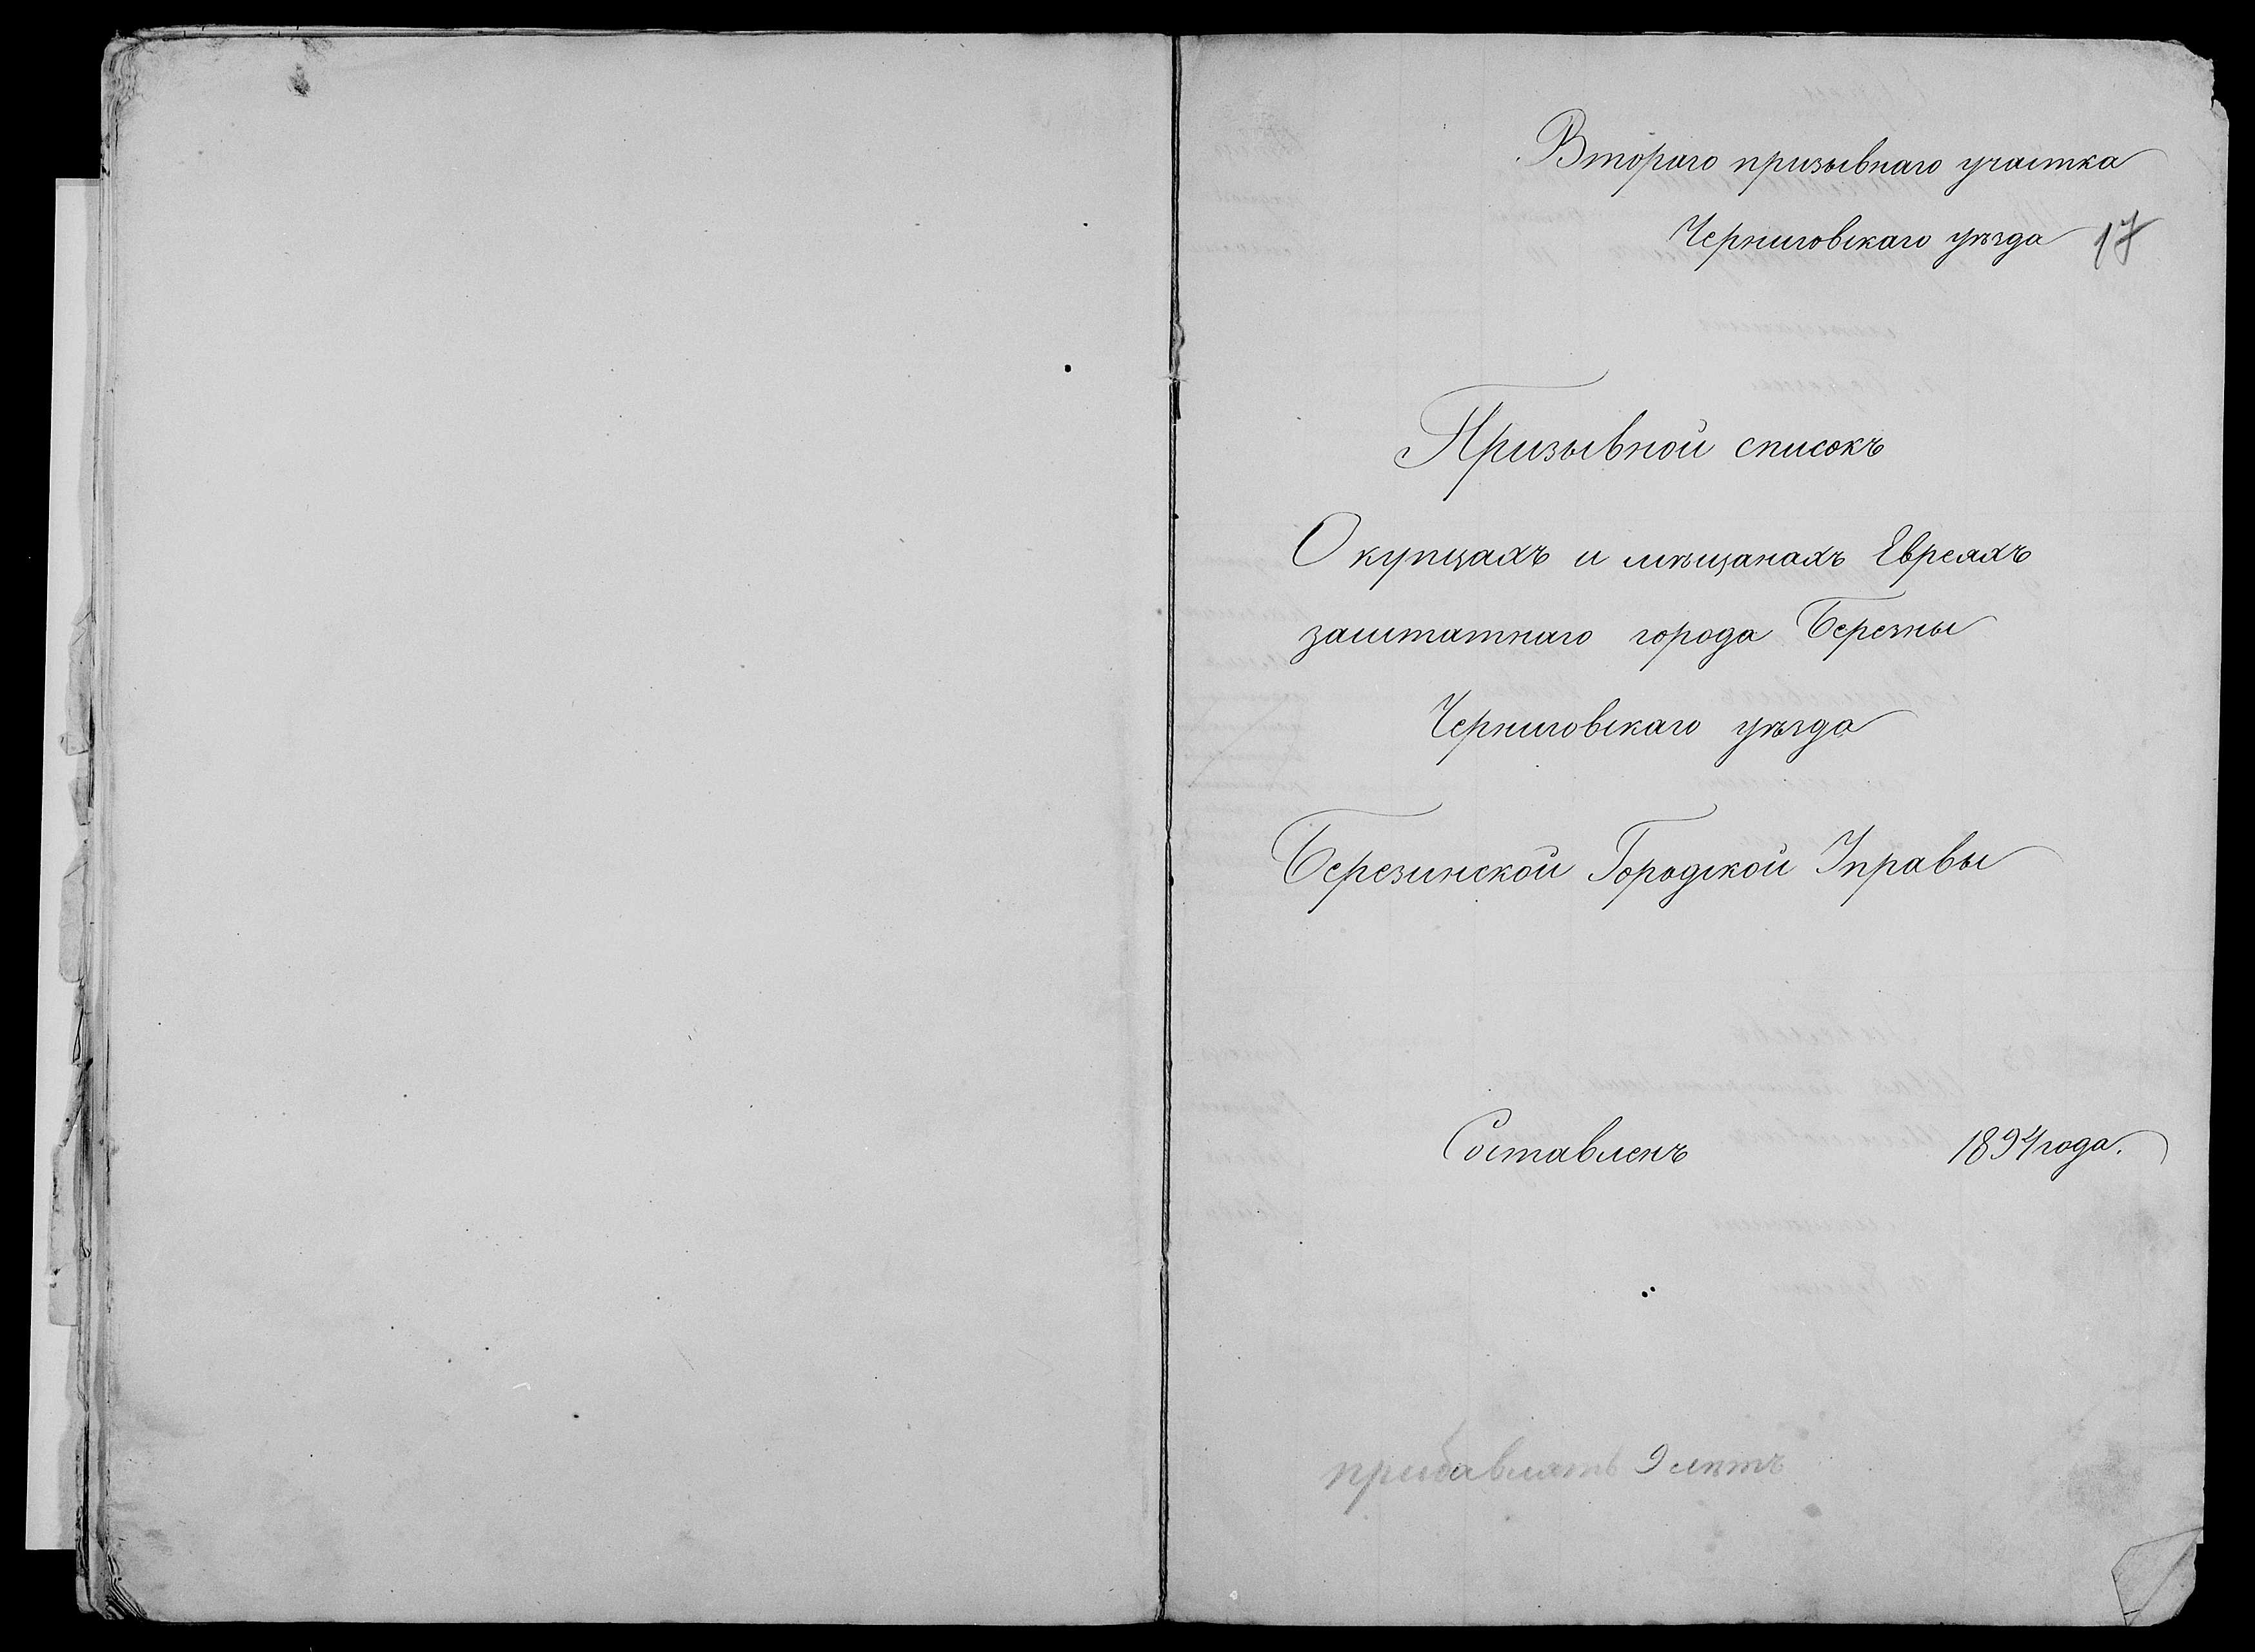 Втораго призывнаго участка
Черниговскаго уѣзда 17
Призывной списокъ
О купцахъ и мѣщанахъ Евреяхъ
заштатнаго города Березны
Черниговскаго уѣзда
Березинской Городской Управы
Составленъ 1894 года.
прибавлять 9 лѣтъ